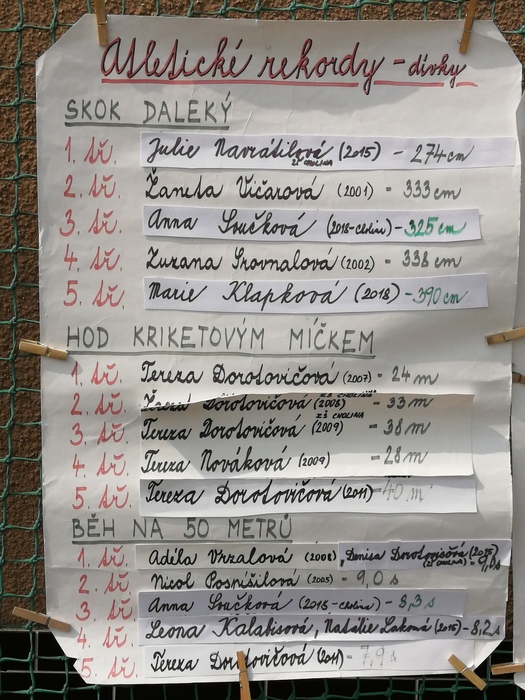 Atletické rekordy - dívky
SKOK DALEKÝ
1. tř. Julie Navrátilová (2015) - 274 cm
ZŠ CHOLINA
2. tř. Žaneta Vičarová (2001) - 333 cm
3. tř. Anna Součková (2018-cholina) - 325 cm
4. tř. Zuzana Srovnalová (2002) - 338 cm
5. tř. Marie Klapková (2018) - 390 cm
HOD KRIKETOVÝM MÍČKEM
1. tř. Tereza Dorotovičová (2007) - 24 m
ZŠ CHOLINA
2. tř. Tereza Dorotovičová (2008) - 33 m
ZŠ CHOLINA
3. tř. Tereza Dorotovičová (2009) - 38 m
4. tř. Tereza Nováková (2009) - 28 m
5. tř. Tereza Dorotovičová (2011) - 40 m
BĚH NA 50 METRŮ
1. tř. Adéla Vrzalová (2008), Denisa Dorotovičová (2015)
(ZŠ CHOLINA) - 9,0 s
2. tř. Nicol Pospíšilová (2005) - 9,0 s
3. tř. Anna Součková (2018-cholina) - 8,3 s
4. tř. Leona Kalabisová, Natálie Laková (2015) - 8,2 s
5. tř. Tereza Dorotovičová (2011) - 7,9 s